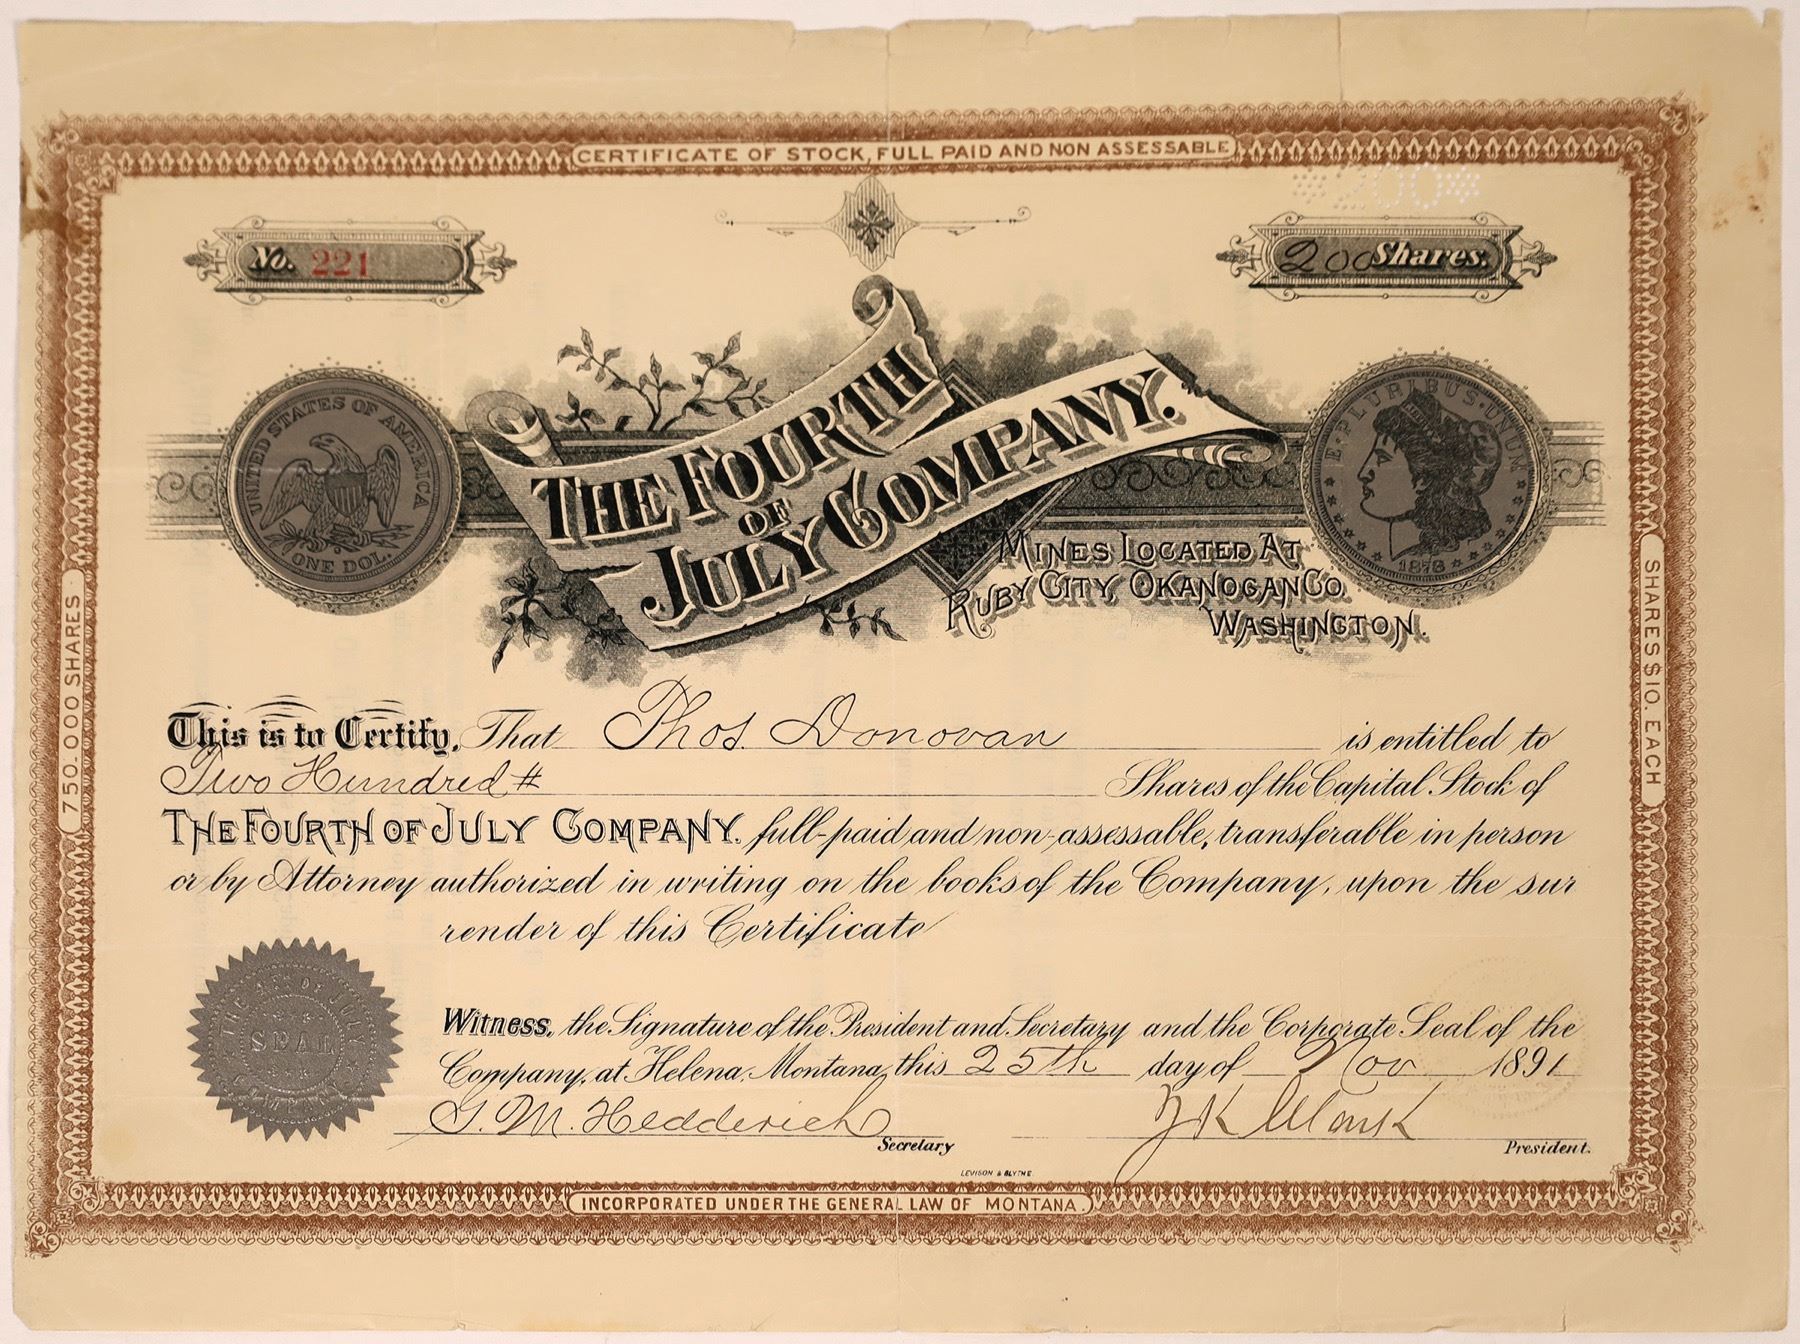 CERTIFICATE OF STOCK, FULL PAID AND NON ASSESSABLE
*200*
No. 221
200 Shares.
UNITED STATES OF AMERICA
ONE DOL.
THE FOURTH
OF
JULY COMPANY.
E·PLURIBUS·UNUM
1878
MINES LOCATED AT
RUBY CITY, OKANOGAN CO.
WASHINGTON.
750.000 SHARES
SHARES $10. EACH
This is to Certify, That Thos. Donovan is entitled to
Two Hundred # Shares of the Capital Stock of
THE FOURTH OF JULY COMPANY. full-paid and non-assessable, transferable in person
or by Attorney authorized in writing on the books of the Company, upon the sur
render of this Certificate
THE 4TH OF JULY
SEAL
COMPANY
Witness, the Signature of the President and Secretary and the Corporate Seal of the
Company, at Helena, Montana, this 25th day of Nov 1891
Secretary
President.
LEVISON & BLYTHE
INCORPORATED UNDER THE GENERAL LAW OF MONTANA.